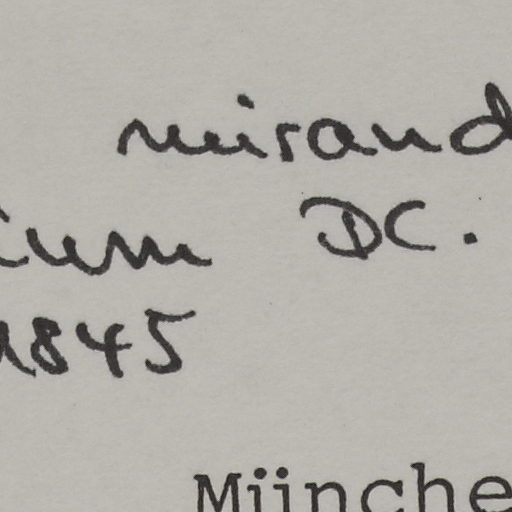 mirand
DC.
1845
Münche